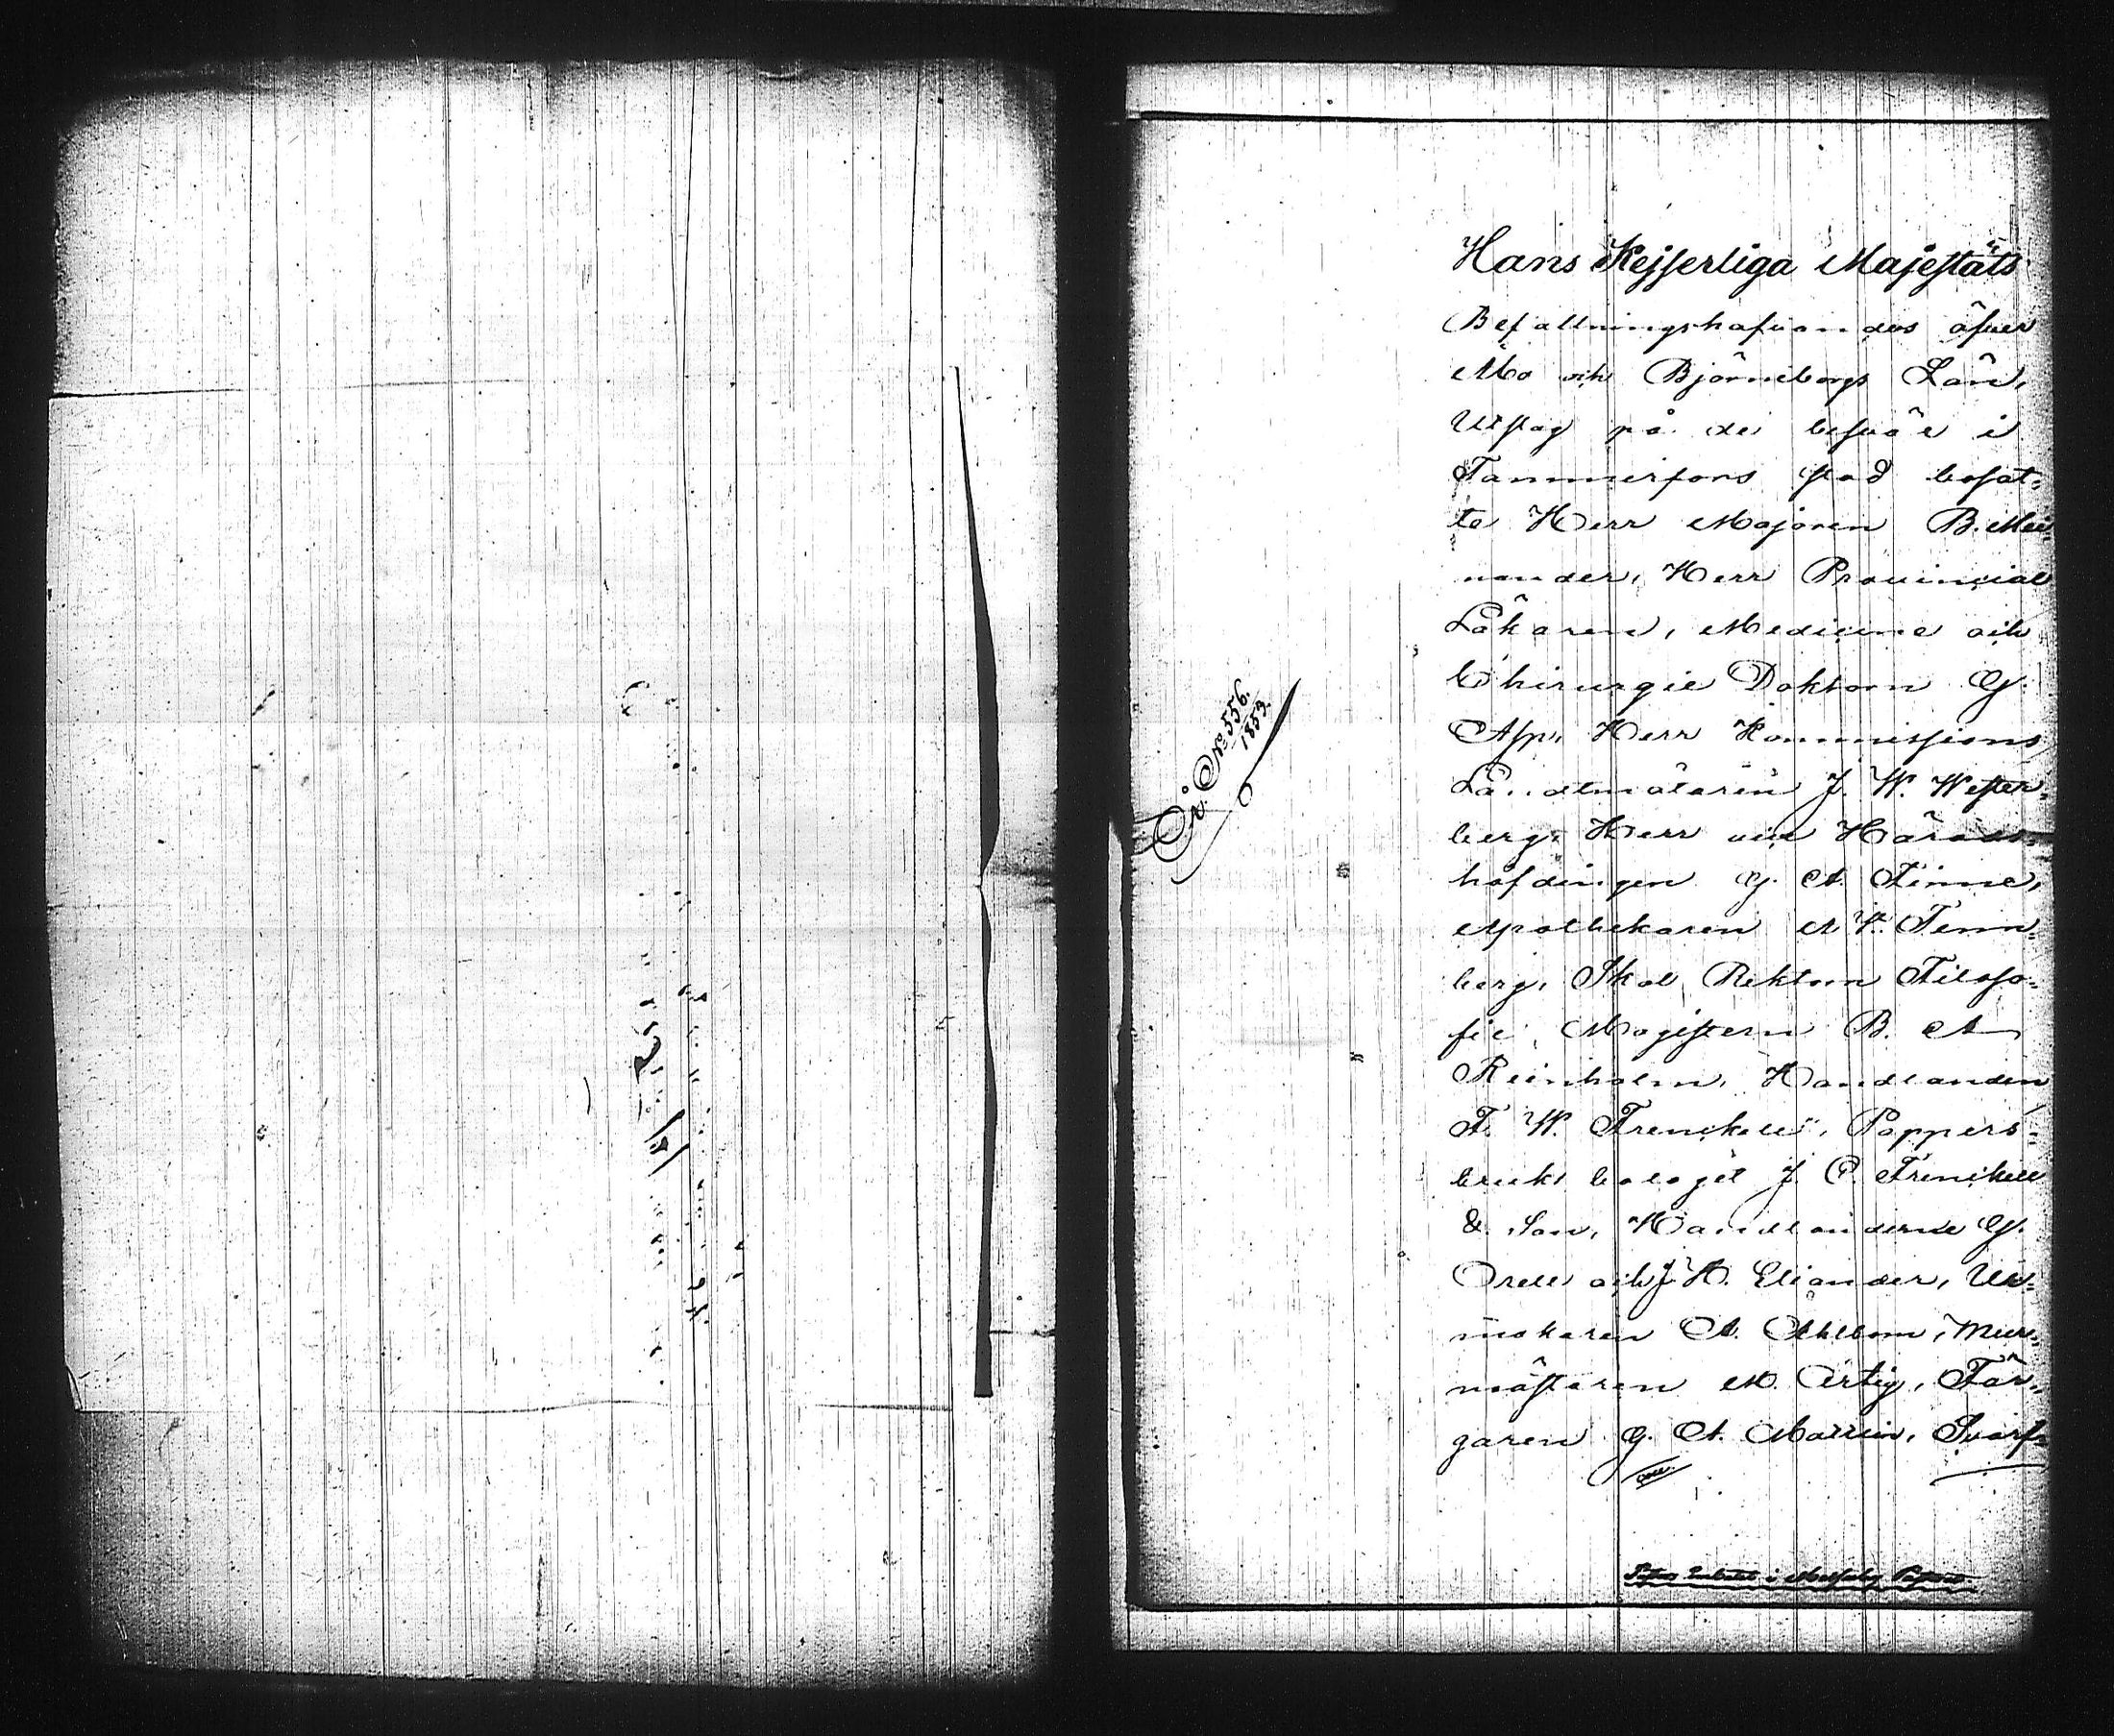 Hans Kejserliga Majestäts
Befallningshafvandes öfver
Åbo och Björneborgs Län,
Utslag på de besvär i
Tammerfors stad bosat-
te Herr Majoren B. Mei-
nander, Herr Provincial
Läkaren, Medicine och
Chirurgie Doktorn G.
Asp, Herr Kommissions
Landtmätaren J. W. Wester-
berg, Herr vice Härads-
höfdingen G. A. Finne,
Apothekaren A W. Tenn-
berg, Skol Rektorn Filoso-
fie Magistern B. A
Reinholm, Handlanden
F. W. Frenckell, Pappers-
bruks bolaget J. C. Frenckell
& Son, Handlanderne G.
Orell och J H. Eliander, Ur-
makaren A. Åhlbom, Mur-
mästaren M. Artig, Fär-
garen G. A. Mallin, Svarf-
Nº 556.
1859